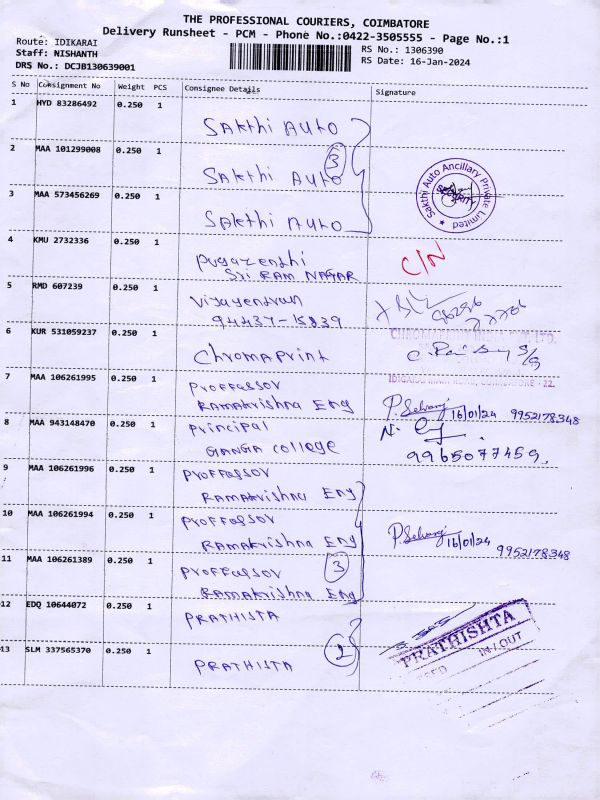 THE PROFESSIONAL COURIERS, COIMBATORE
Delivery Runsheet - PCM - Phone No.:0422-3505555 - Page No.:1
Route: IDIKARAI
RS No.: 1306390
Staff: NISHANTH
RS Date: 16-Jan-2024
DRS No.: DCJB130639001
S No Consignment No Weight PCS Consignee Details Signature
1 HYD 83286492 0.250 1
Sakthi Auto
2 MAA 101299008 0.250 1
3
Sakthi Auto
Sakthi Auto Ancillary Private Limited ★
SECURITY
3 MAA 573456269 0.250 1
Sakthi Auto
4 KMU 2732336 0.250 1
Pugazenthi
Sri RAM NAGAR
C/N
5 RMD 607239 0.250 1
Vijayendran
94437-15839
6 KUR 531059237 0.250 1
Chromaprint
7 MAA 106261995 0.250 1
Proffassor
Ramakrishna Eng
P. Selvaraj 16/01/24 9952178348
8 MAA 943148470 0.250 1
Principal
GANGA College
9965077459.
9 MAA 106261996 0.250 1
Proffassor
Ramakrishna Eng
10 MAA 106261994 0.250 1
Proffassor
Ramakrishna Eng
P. Selvaraj 16/01/24
9952178348
11 MAA 106261389 0.250 1
3
Proffassor
Ramakrishna Eng
12 EDQ 10644072 0.250 1
PRATHISTA
PRATHISHTA
IN / OUT
13 SLM 337565370 0.250 1
2
PRATHISTA